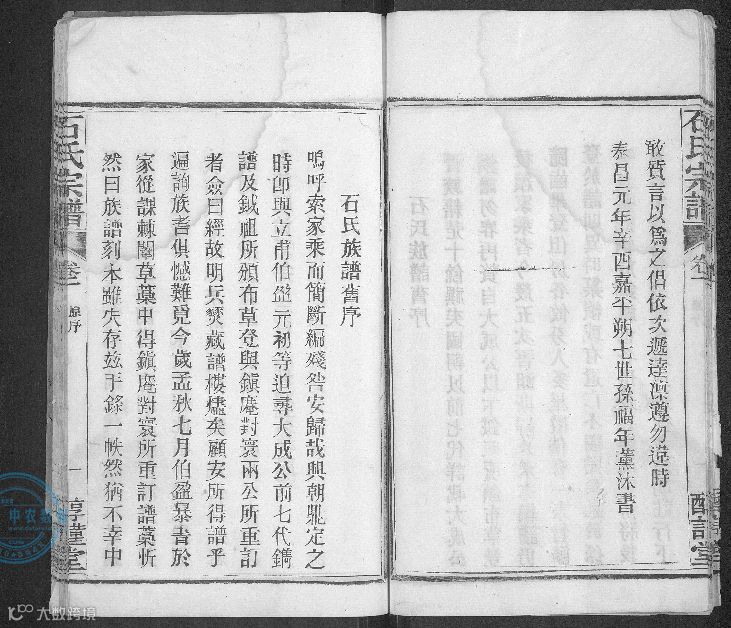 敢質言以為之倡依次遞達凜遵勿違時
泰昌元年辛酉嘉平朔七世孫福年薰沐書
石氏宗譜
卷一
石氏族譜舊序
嗚呼索家乘而簡斷編殘咎安歸哉興朝鼎定之
時卽與立甫伯盈元初等追尋大成公前七代鐫
譜及鉞祖所頒布草登與鎮庵對寰兩公所重訂
者僉曰經故明兵燹藏譜樓燼矣顧安所得譜乎
遍詢族耆俱憾難覓今歲孟秋七月伯盈暴書於
家從課棘闈草藁中得鎮庵對寰所重訂譜藁忻
然曰族譜刻本雖失存茲手錄一帙然猶不幸中
石氏宗譜
卷一
原序
一
惇謹堂
大数跨境